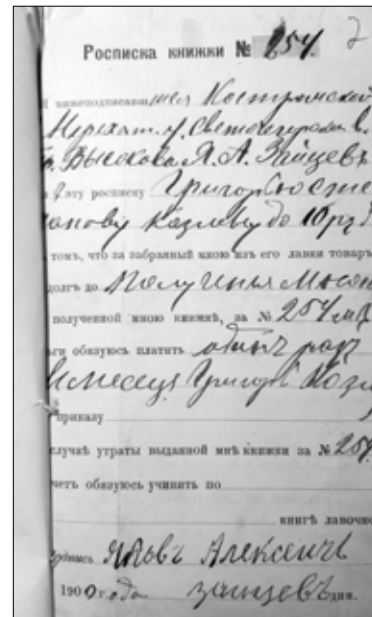 Росписка книжки № 254
нижеподписавшiйся Костромской
Нерехт. у.
Высокова Я. А. Зайцевъ
эту росписку Григорью Сте
панову Козлову до 10 руб
томъ, что за забранный мною изъ его лавки товаръ
долгъ до Получения
полученной мною книжкѣ, за № 254
обязуюсь платить одинъ раз
месяца Григорью Козл
приказу
случаѣ утраты выданной мнѣ книжки за № 254
обязуюсь учинить по
книгѣ лавочно
Яковъ Алексеичъ
1900 года зайцевъ дня.